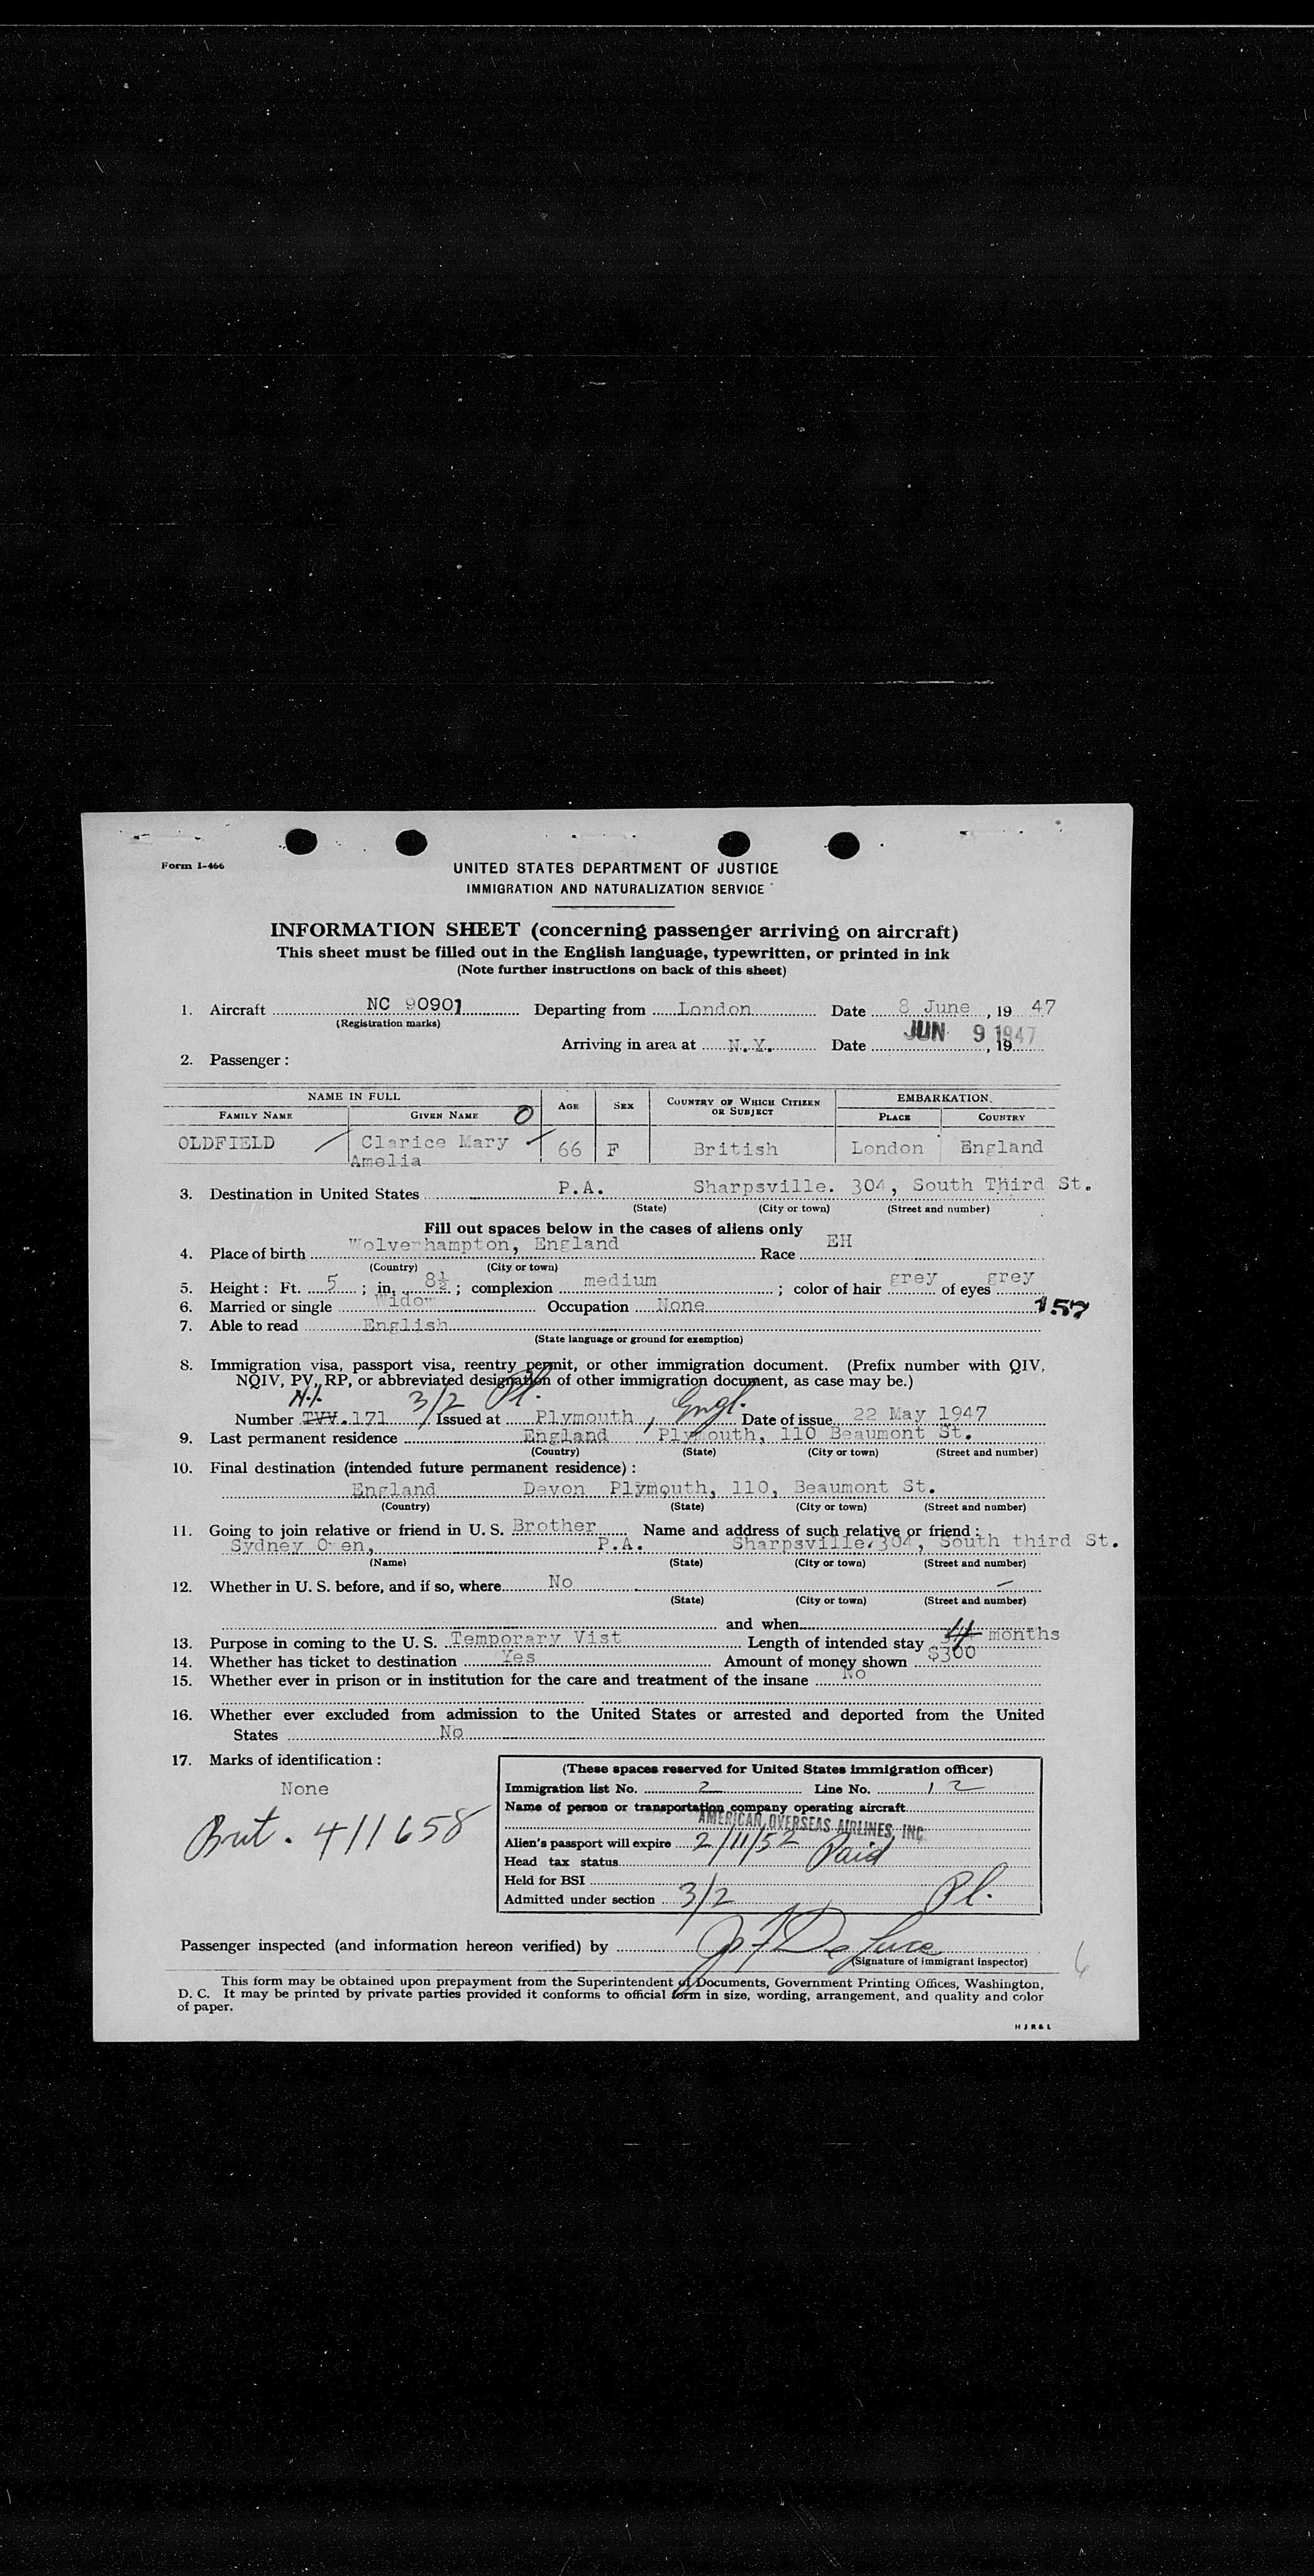 Form I-466
UNITED STATES DEPARTMENT OF JUSTICE
IMMIGRATION AND NATURALIZATION SERVICE
INFORMATION SHEET (concerning passenger arriving on aircraft)
This sheet must be filled out in the English language, typewritten, or printed in ink
(Note further instructions on back of this sheet)
1. Aircraft NC 90901 Departing from London Date 8 June, 19 47
(Registration marks)
JUN 9 1947
Arriving in area at N.Y. Date , 19
2. Passenger:
NAME IN FULL AGE SEX COUNTRY OF WHICH CITIZEN OR SUBJECT EMBARKATION.
FAMILY NAME GIVEN NAME O PLACE COUNTRY
OLDFIELD Clarice Mary 66 F British London England
Amelia
3. Destination in United States P.A. Sharpsville. 304, South Third St.
(State) (City or town) (Street and number)
Fill out spaces below in the cases of aliens only
4. Place of birth Wolverhampton, England Race EH
(Country) (City or town)
5. Height: Ft. 5; in. 8½; complexion medium; color of hair grey of eyes grey
6. Married or single Widow Occupation None 157
7. Able to read English
(State language or ground for exemption)
8. Immigration visa, passport visa, reentry permit, or other immigration document. (Prefix number with QIV,
NQIV, PV, RP, or abbreviated designation of other immigration document, as case may be.)
3/2 Pl.
Number TVV.171 Issued at Plymouth, Engl. Date of issue 22 May 1947
9. Last permanent residence England Plymouth, 110 Beaumont St.
(Country) (State) (City or town) (Street and number)
10. Final destination (intended future permanent residence):
England Devon Plymouth, 110, Beaumont St.
(Country) (State) (City or town) (Street and number)
11. Going to join relative or friend in U. S. Brother Name and address of such relative or friend:
Sydney Owen, P.A. Sharpsville. 304, South third St.
(Name) (State) (City or town) (Street and number)
12. Whether in U. S. before, and if so, where No
(State) (City or town) (Street and number)
and when
13. Purpose in coming to the U. S. Temporary Vist Length of intended stay 4 months
14. Whether has ticket to destination Yes Amount of money shown $300
15. Whether ever in prison or in institution for the care and treatment of the insane No
16. Whether ever excluded from admission to the United States or arrested and deported from the United
States No
17. Marks of identification:
None
Brit. 411658
(These spaces reserved for United States immigration officer)
Immigration list No. 2 Line No. 12
Name of person or transportation company operating aircraft
AMERICAN OVERSEAS AIRLINES, INC
Alien's passport will expire 2/11/52
Head tax status Paid
Held for BSI
Admitted under section 3/2 Pl.
Passenger inspected (and information hereon verified) by
(Signature of immigrant inspector)
This form may be obtained upon prepayment from the Superintendent of Documents, Government Printing Offices, Washington,
D. C. It may be printed by private parties provided it conforms to official form in size, wording, arrangement, and quality and color
of paper.
H J R & L
6